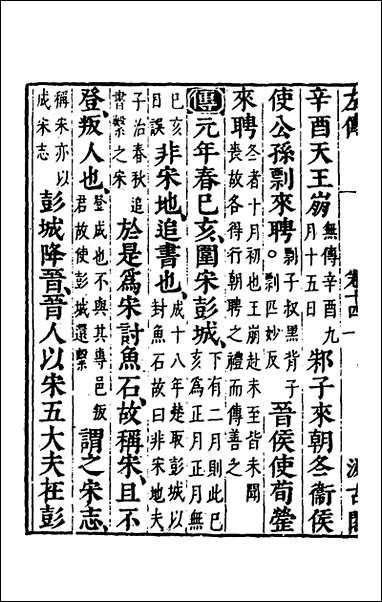 左傳 卷十四 一 汲古閣
辛酉天王崩無傳辛酉九月十五日邾子來朝冬衞侯
使公孫剽來聘。剽子叔黑背子剽匹妙反晉侯使荀罃
來聘冬者十月初也王崩赴未至皆未聞喪故各得行朝聘之禮而傳善之
傳元年春巳亥、圍宋彭城、下有二月則此巳亥爲正月正月無
巳亥日誤非宋地、追書也、成十八年楚取彭城以封魚石故曰非宋地夫
子治春秋追書繫之宋於是爲宋討魚石、故稱宋、且不
登叛人也、登成也不與其專邑叛君故使彭城還繫謂之宋志、
稱宋亦以成宋志彭城降晉、晉人以宋五大夫在彭